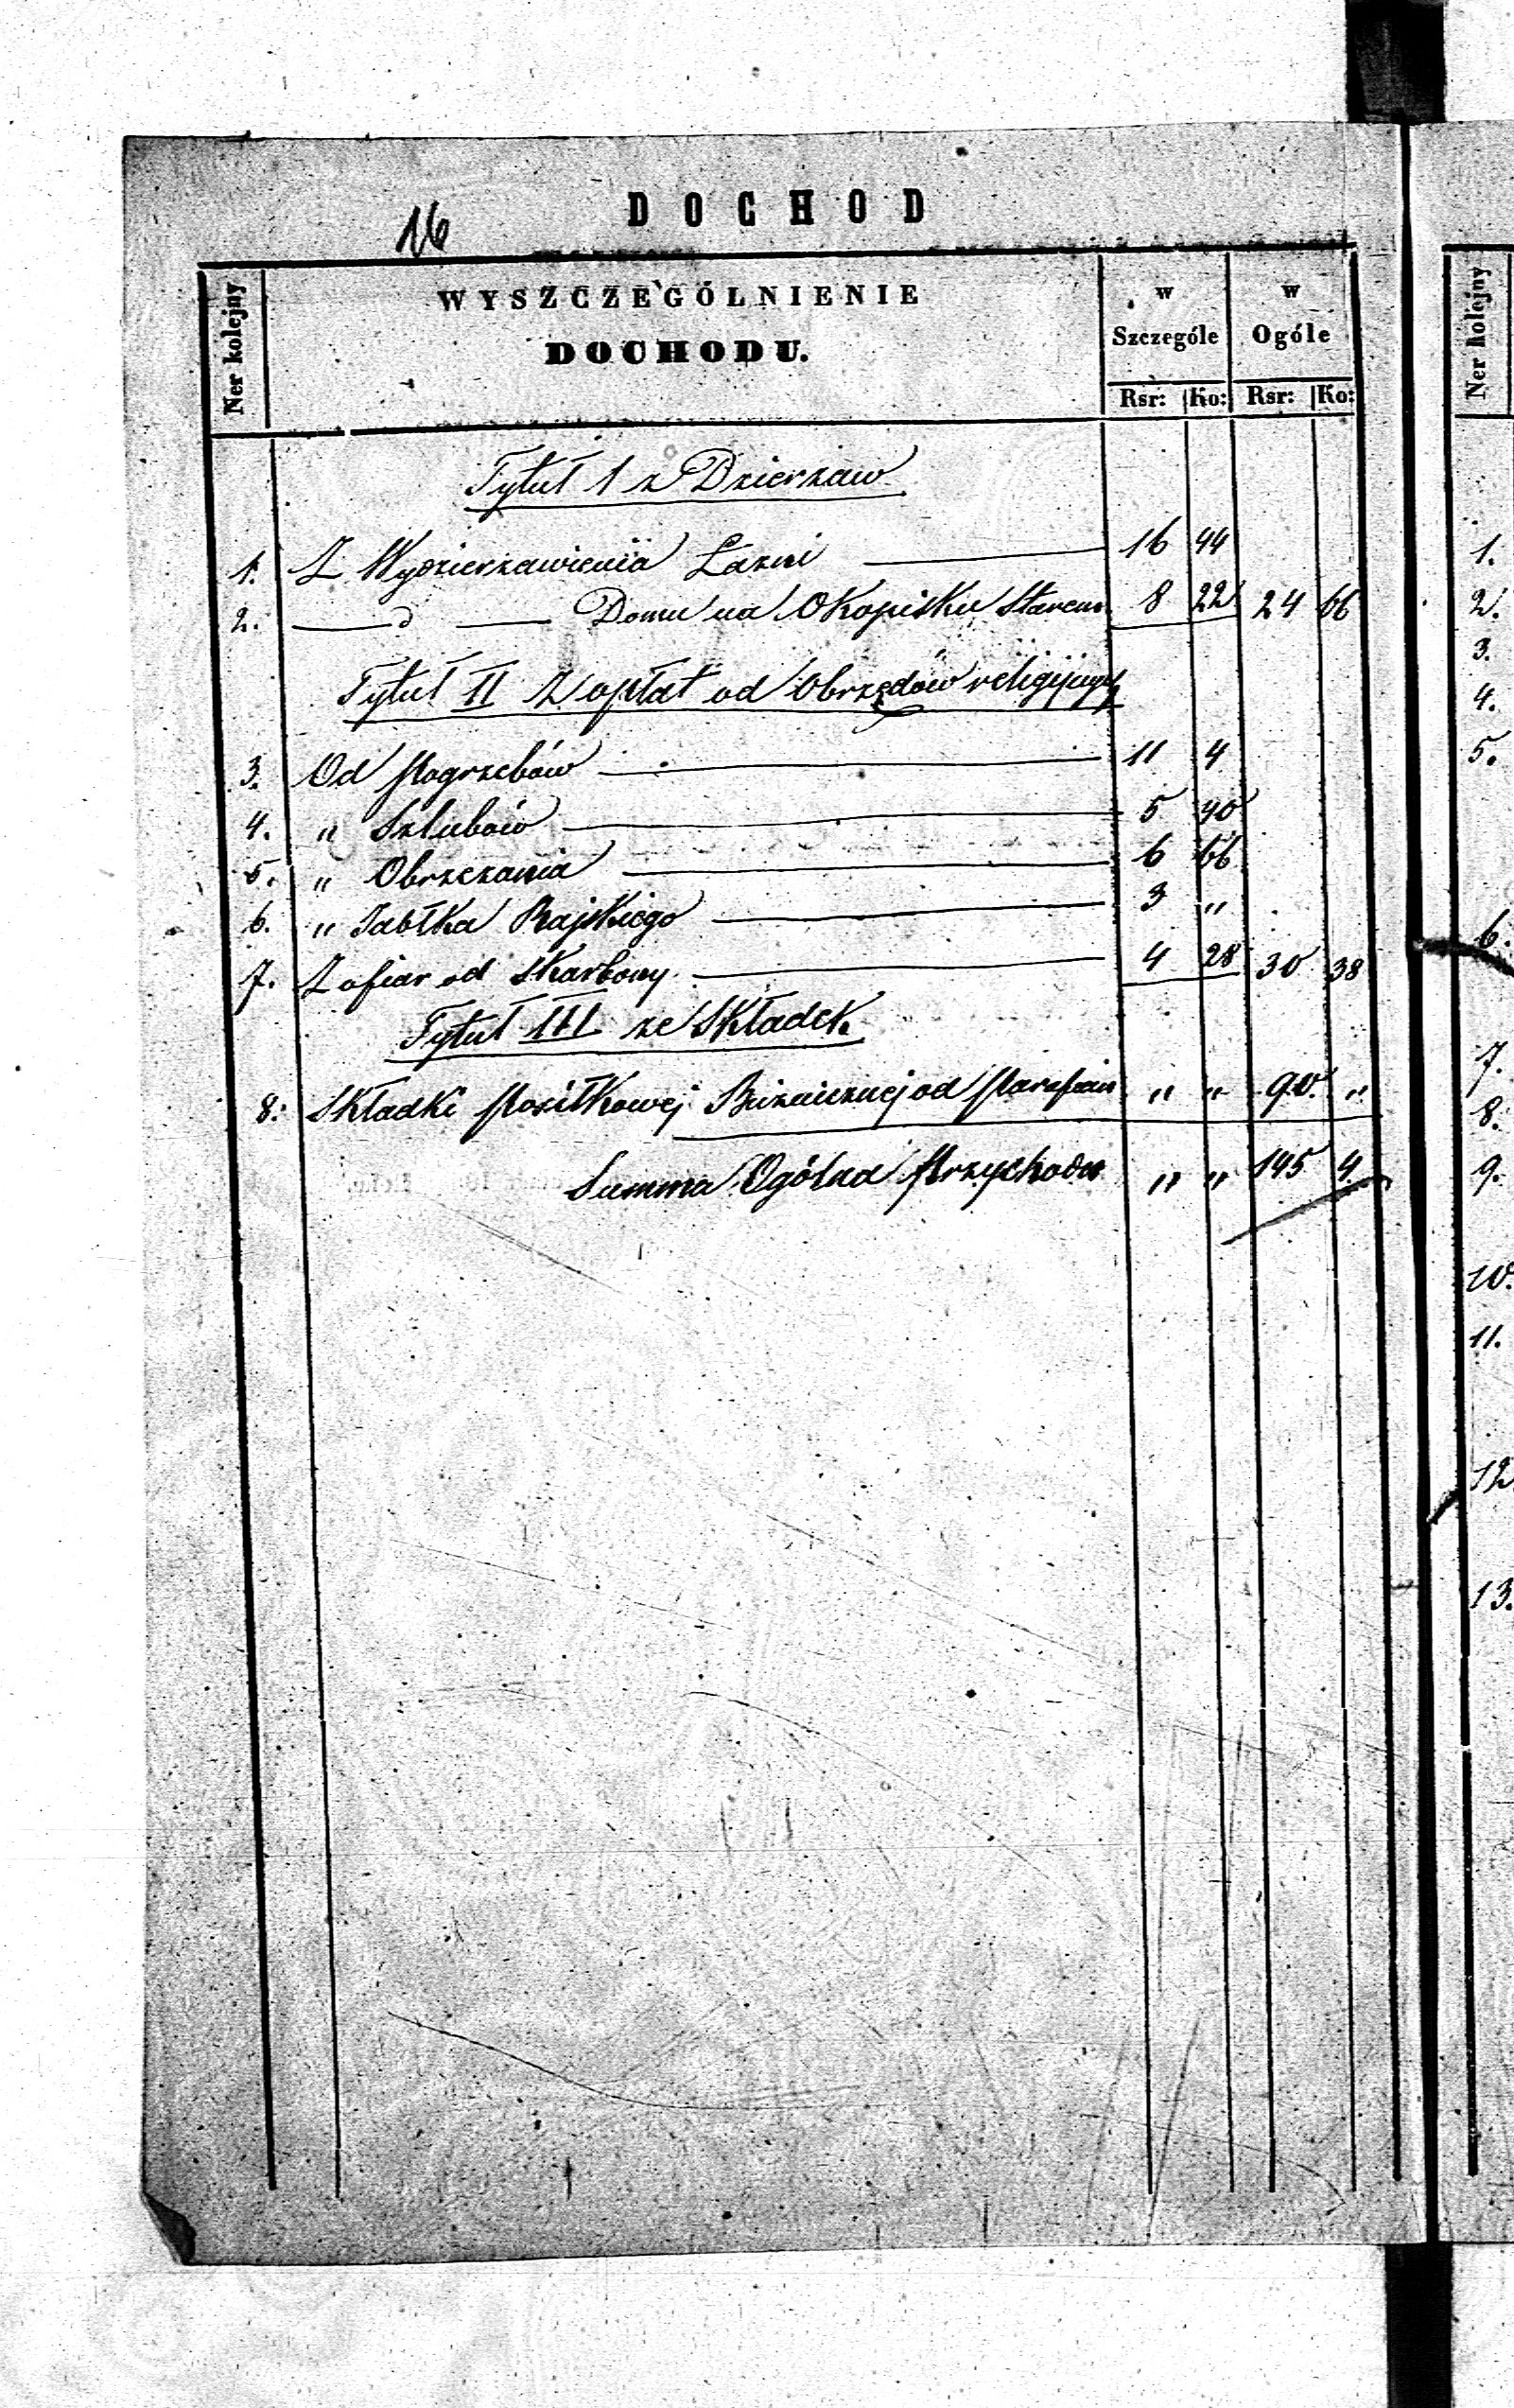 DOCHOD
16
Ner kolejny WYSZCZEGÓLNIENIE w w Ner kolejny
DOCHODU. Szczególe Ogóle
Rsr: Ko: Rsr: Ko:
Tytuł 1 z Dzierzaw
1. Z Wydzierzawienia Łazni 16 44 1.
2. d Domu na Okopisku Starem 8 22 24 66 2.
3.
Tytuł II Z opłat od Obrzędow religijnych 4.
3. Od Pogrzebów 11 4 5.
4. " Szlubów 5 40
5. " Obrzezania 6 66
6. " Jabłka Rajskiego 3 " 6.
7. Z ofiar od Skarbony 4 28 30 38
Tytuł III ze Składek 7.
8. Składki Posiłkowej Bużnicznej od Parafian " " 90. " 8.
Summa Ogólna Przychodu " " 145 4 9.
10.
11.
12
13.